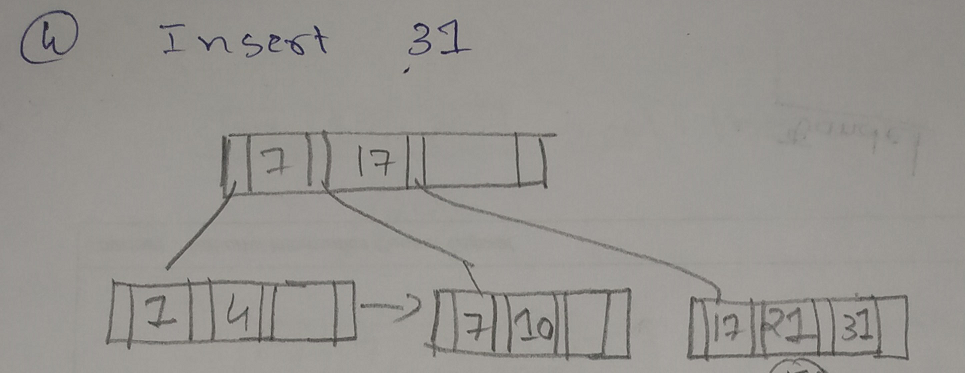 4 Insert 31
7 17
1 4 7 10 17 21 31